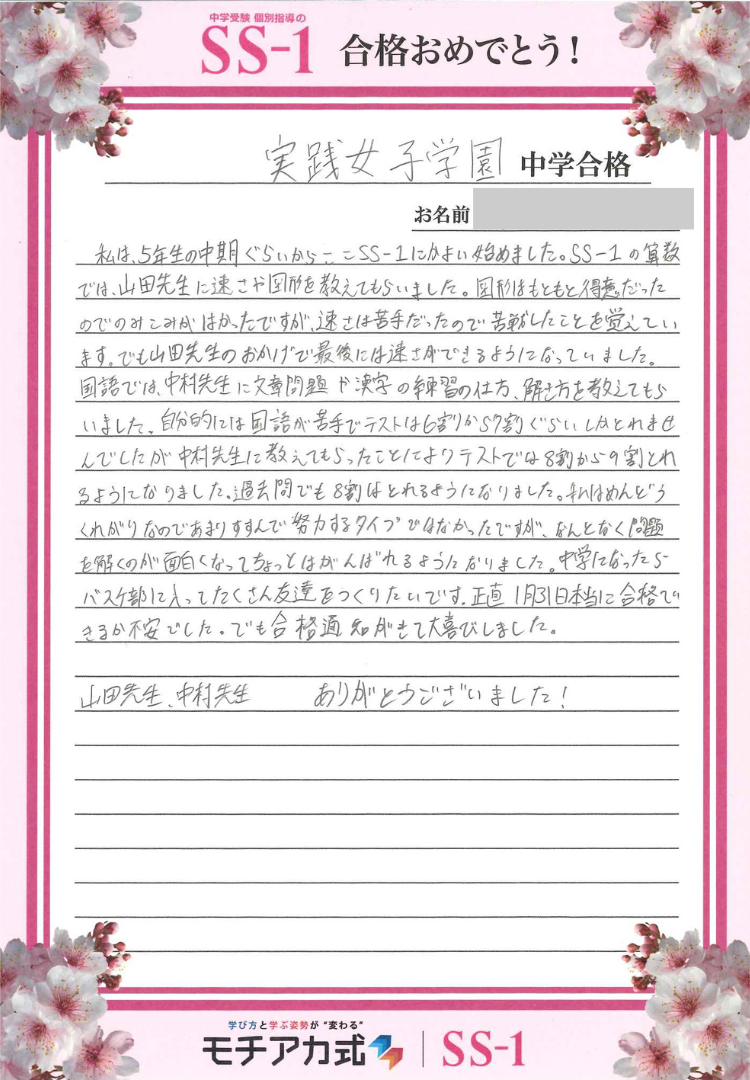 中学受験 個別指導の
SS-1 合格おめでとう!
実践女子学園 中学合格
お名前
私は、5年生の中期ぐらいからここSS-1にかよい始めました。SS-1の算数
では、山田先生に速さや図形を教えてもらいました。図形はもともと得意だった
のでのみこみがはやかったですが、速さは苦手だったので苦戦したことを覚えてい
ます。でも山田先生のおかげで最後には速さができるようになっていました。
国語では、中村先生に文章問題や漢字の練習の仕方、解き方を教えてもら
いました。自分的には国語が苦手でテストは6割から7割ぐらいしかとれませ
んでしたが中村先生に教えてもらったことによりテストでは8割から9割とれ
るようになりました。過去問でも8割はとれるようになりました。私はめんどう
くれがりなのであまりすすんで努力するタイプではなかったですが、なんとなく問題
を解くのが面白くなってちょっとはがんばれるようになりました。中学になったら
バスケ部に入ってたくさん友達をつくりたいです。正直1月31日本当に合格で
きるか不安でした。でも合格通知がきて大喜びしました。
山田先生、中村先生 ありがとうございました!
学び方と学ぶ姿勢が“変わる”
モチアカ式 SS-1